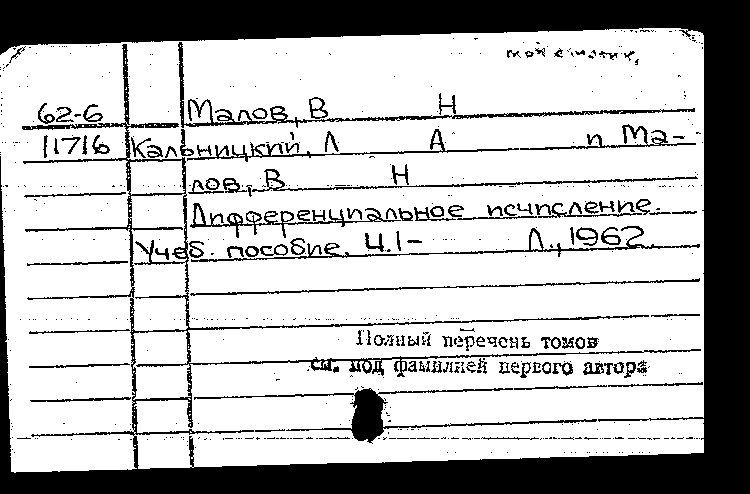 62-6 Малов, В Н
11716 Кальницкий, Л А и Ма-
лов, В Н
Дифференциальное исчисление.
Учеб. пособие. Ч.1- Л., 1962.
Полный перечень томов
см. под фамилией первого автора